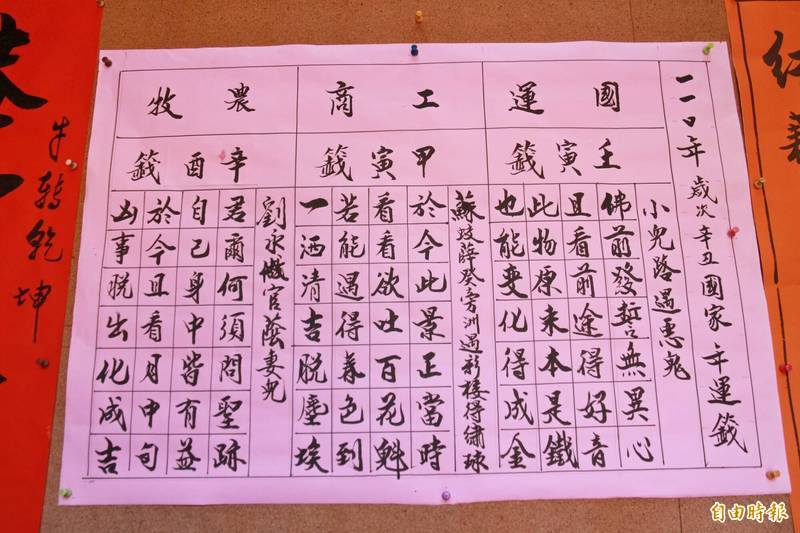 牛轉乾坤
一一0年歲次辛丑國家年運籤
國運
壬寅籤
小兒路遇惡鬼
佛前發誓無異心
且看前途得好音
此物原來本是鐵
也能變化得成金
工商
甲寅籤
蘇蚊薛癸旁洲遇彩樓得繡球
於今此景正當時
看看欲吐百花魁
若能遇得春色到
一洒清吉脫塵埃
農牧
辛酉籤
劉永做官蔭妻兒
君爾何須問聖跡
自己身中皆有益
於今且看月中旬
凶事脫出化成吉
自由時報